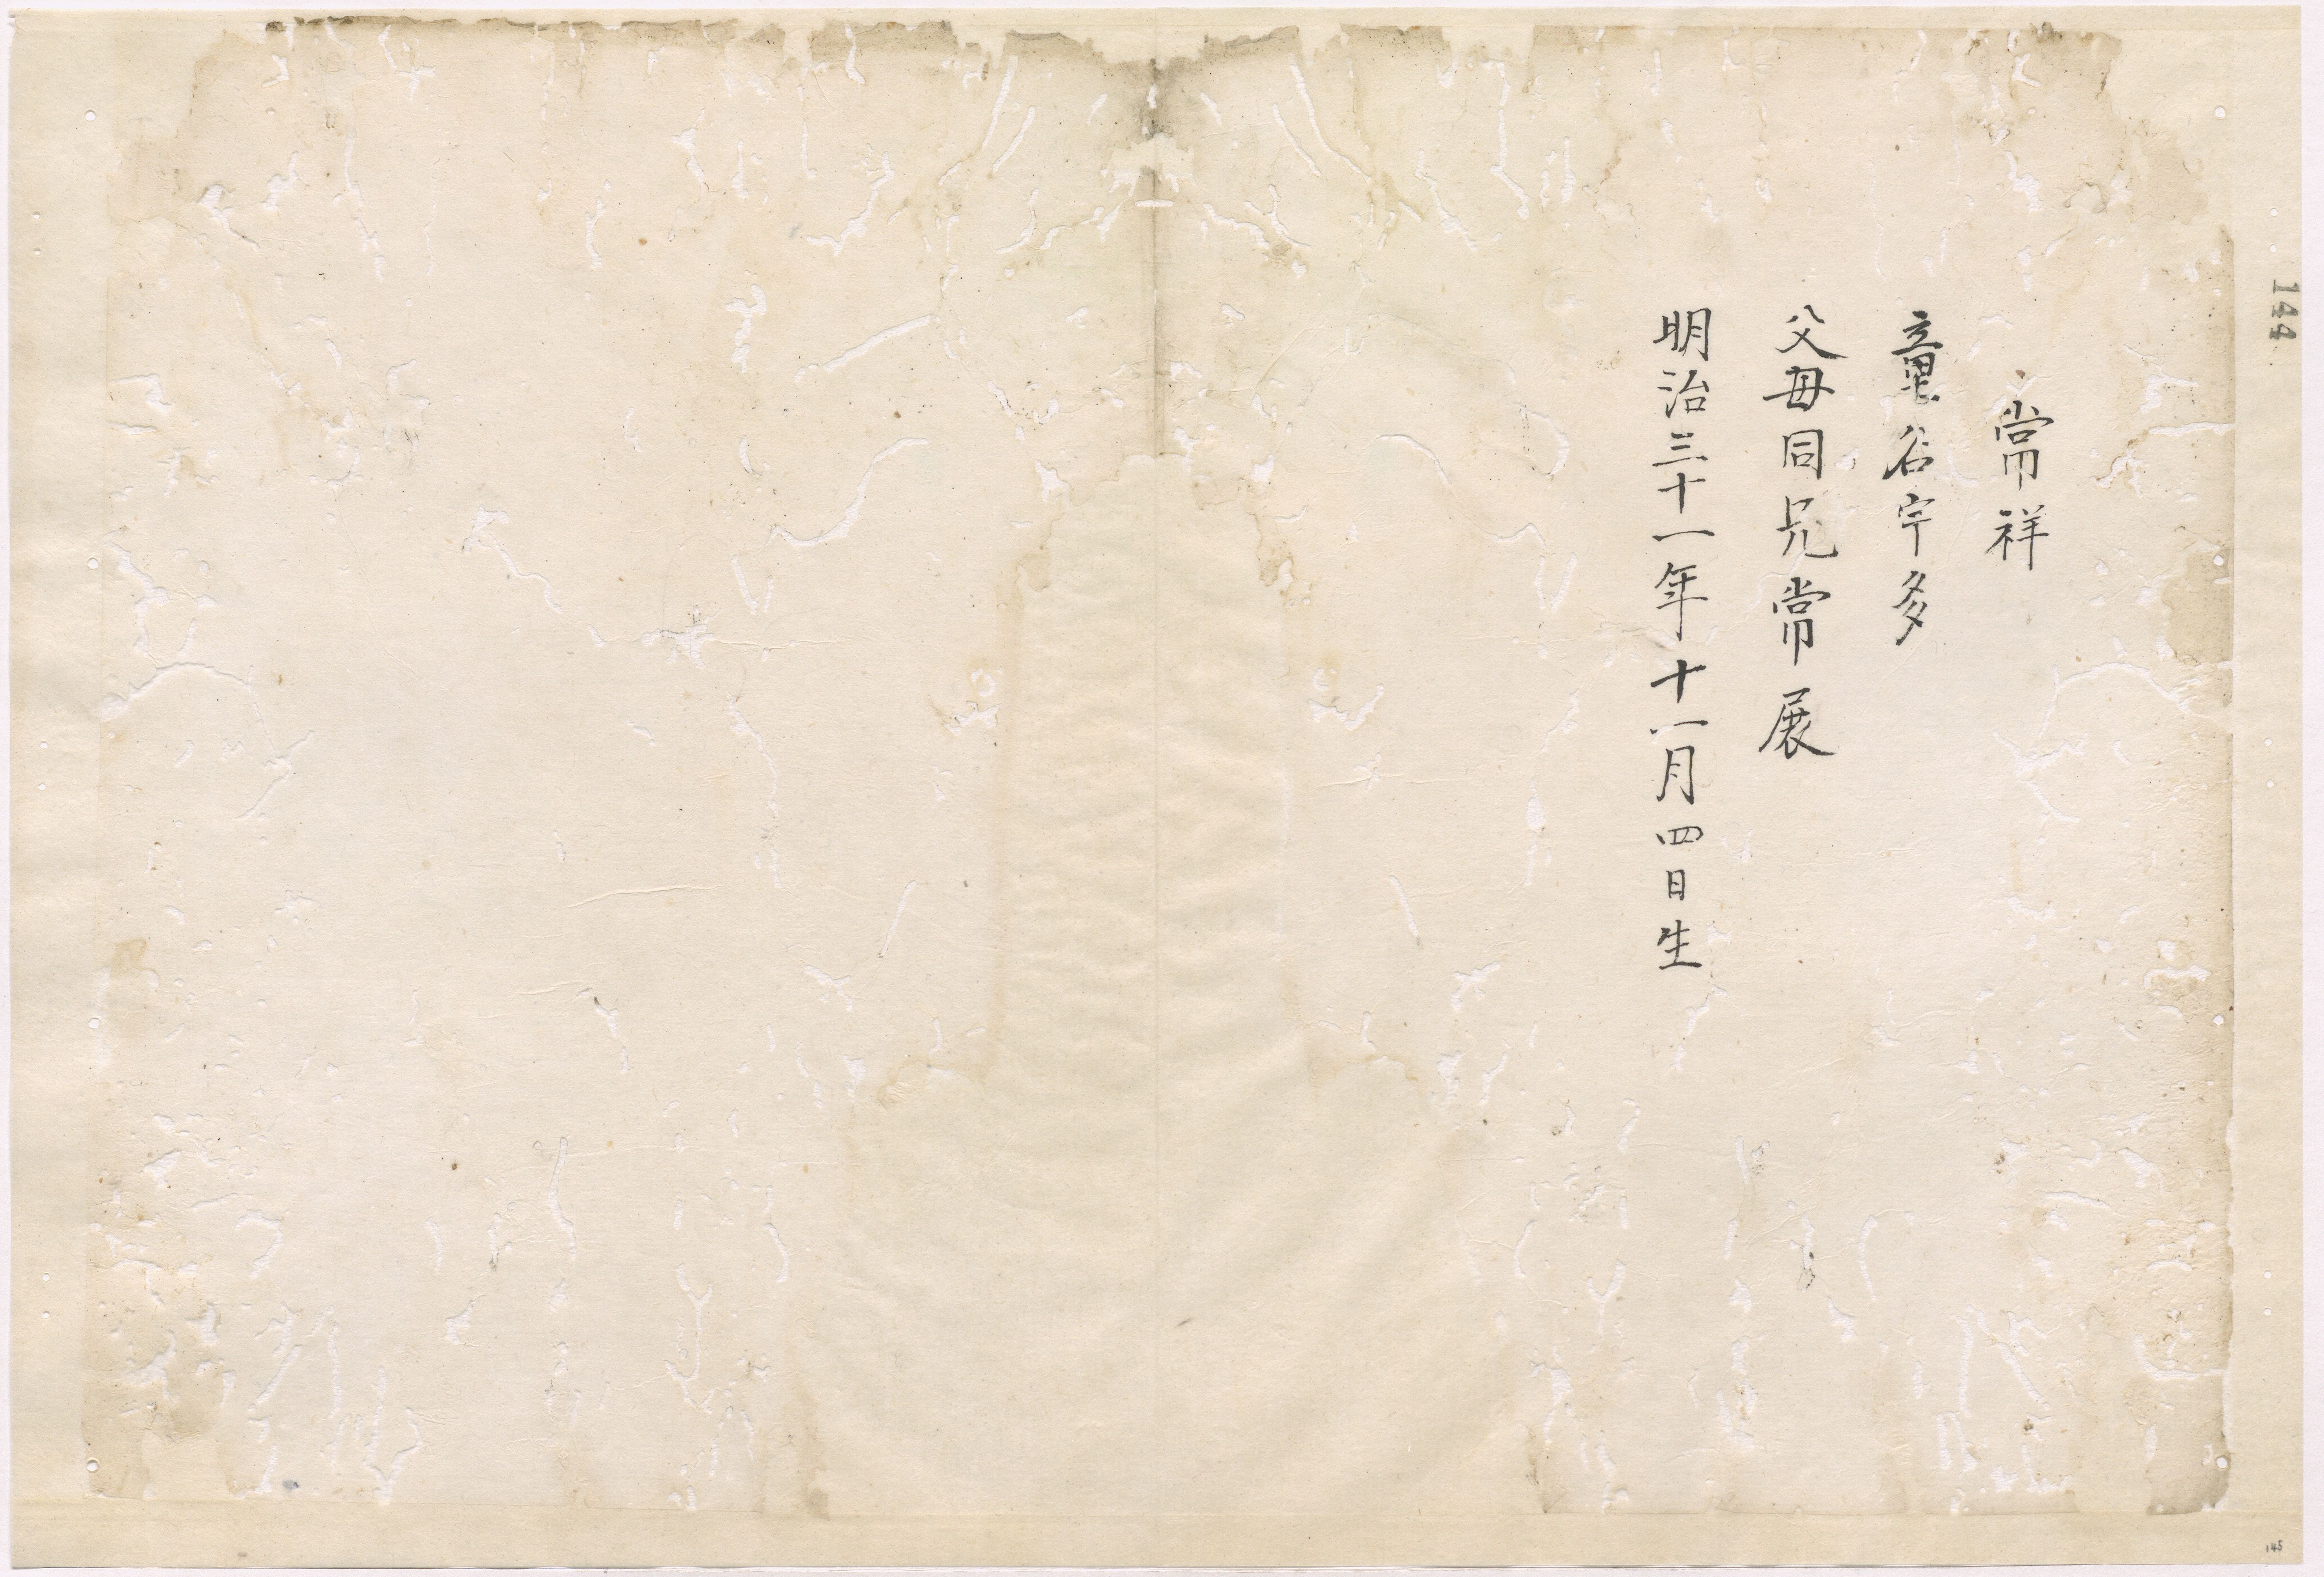 常祥
童名宇多
父母同兄常展
明治三十一年十一月四日生
144
145